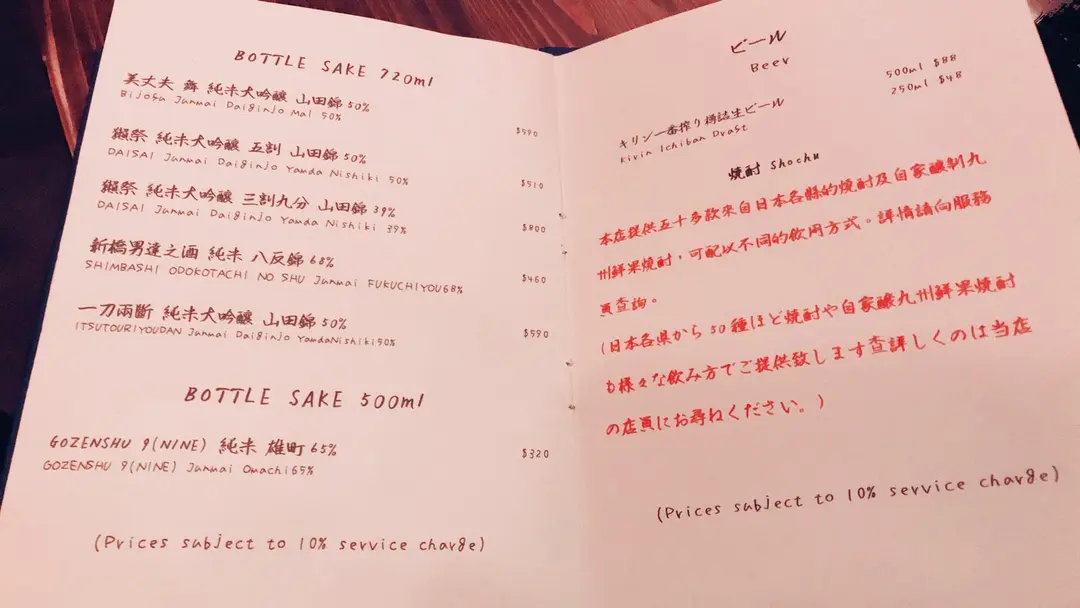 BOTTLE SAKE 720ml
美丈夫 舞 純米大吟醸 山田錦 50%
Bijofu Junmai Daiginjo Mai 50%
$590
獺祭 純米大吟醸 五割 山田錦 50%
DAISAI Junmai Daiginjo Yamda Nishiki 50%
$510
獺祭 純米大吟醸 三割九分 山田錦 39%
DAISAI Junmai Daiginjo Yamda Nishiki 39%
$800
新橋男達之酒 純米 八反錦 68%
SHIMBASHI ODOKOTACHI NO SHU Junmai FUKUCHIYOU68%
$460
一刀兩斷 純米大吟醸 山田錦 50%
ITSUTOURIYOUDAN Junmai Daiginjo YamdaNishiki50%
$590
BOTTLE SAKE 500ml
GOZENSHU 9(NINE) 純米 雄町 65%
GOZENSHU 9(NINE) Junmai Omachi65%
$320
(Prices subject to 10% service charge)
ビール
Beer
500ml $88
250ml $48
キリン一番搾り樽詰生ビール
Kirin Ichiban Draft
焼酎 Shochu
本店提供五十多款來自日本各縣的燒酎及自家釀制九
州鮮果燒酎，可配以不同的飲用方式。詳情請向服務
員查詢。
(日本各県から 50 種ほど焼酎や自家釀九州鮮果焼酎
も様々な飲み方でご提供致します查詳しくのは当店
の店員にお尋ねください。)
(Prices subject to 10% service charge)